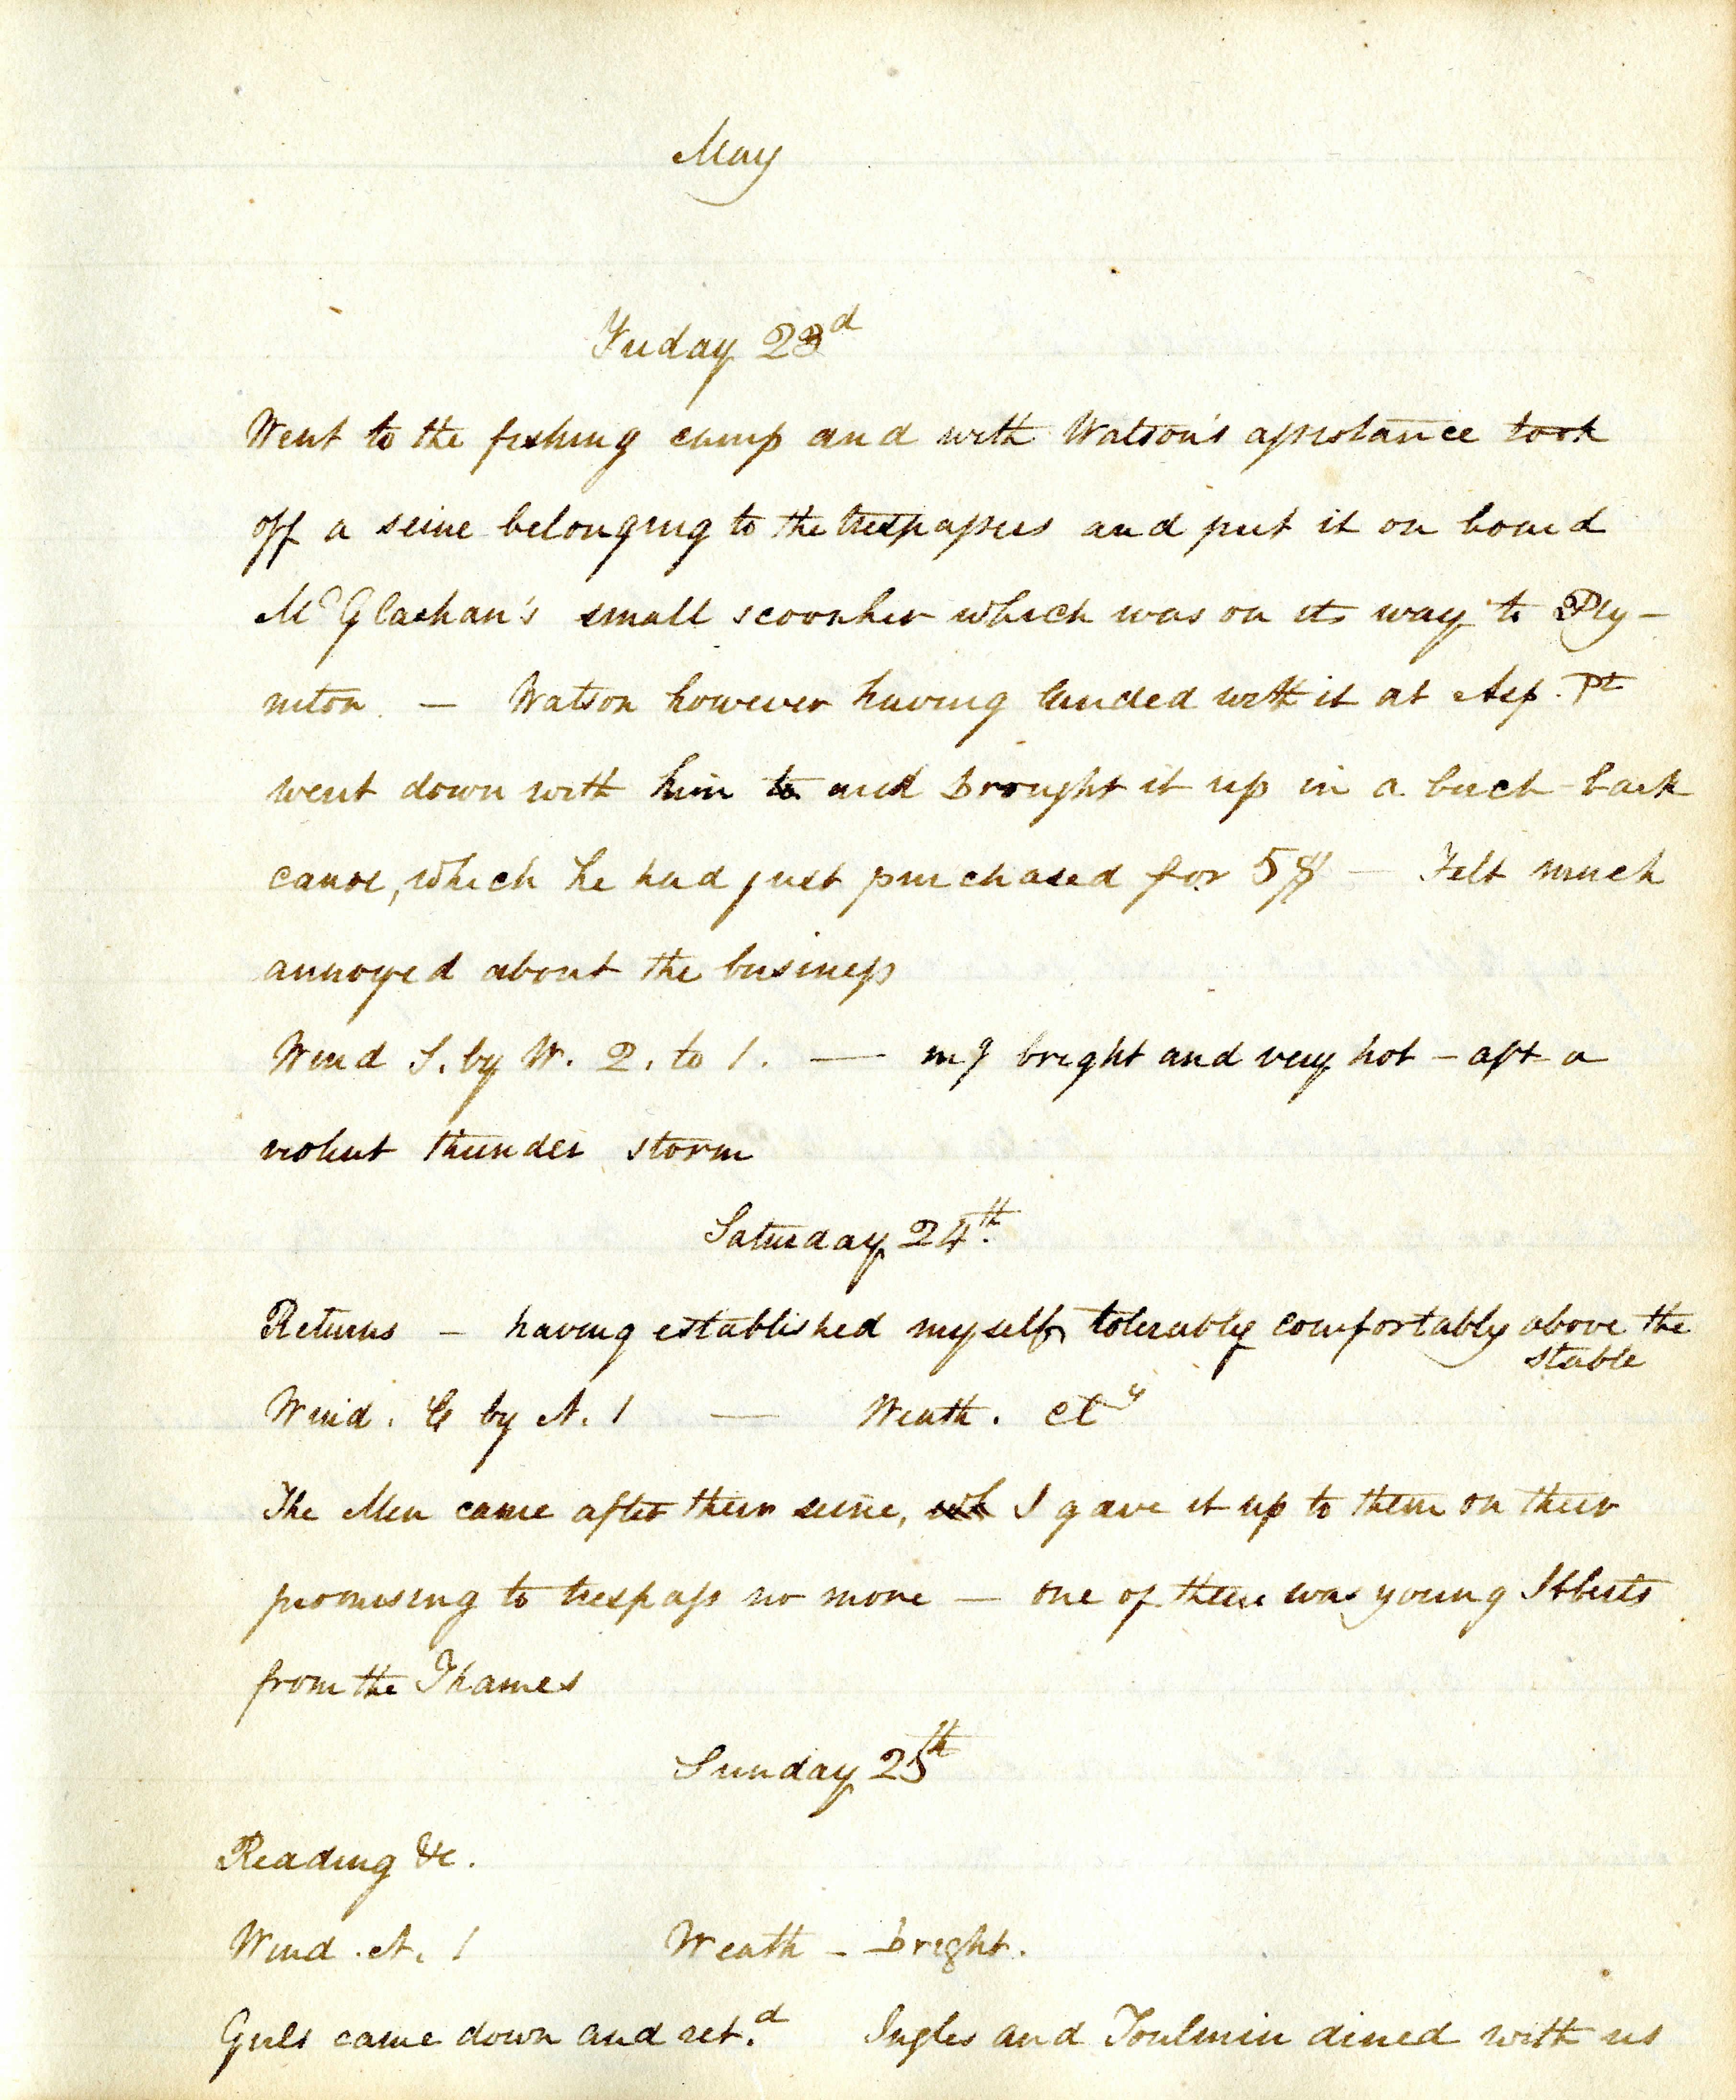 May
Friday 23d
Went to the fishing camp and with Watson's assistance took
off a seine belonging to the trespassers and put it on board
McGlashan's small scoonher which was on its way to Ply-
mton. — Watson however having landed with it at Asp. Pt
went down with him to and brought it up in a birch-bark
canoe, which he had just purchased for 5$ — Felt much
annoyed about the business
Wind S. by W. 2. to 1. — mg bright and very hot - aft a
violent thunder storm
Saturday 24th.
Returns — having established myself tolerably comfortably above the
stable
Wind. E by N. 1 — Weath. cly
The Men came after their seine, I gave it up to them on their
promising to trespass no more — one of them was young
from the Thames
Sunday 25th
Reading &c.
Wind. N. 1 Weath - bright.
Girls came down and ret.d Ingles and Toulmin dined with us